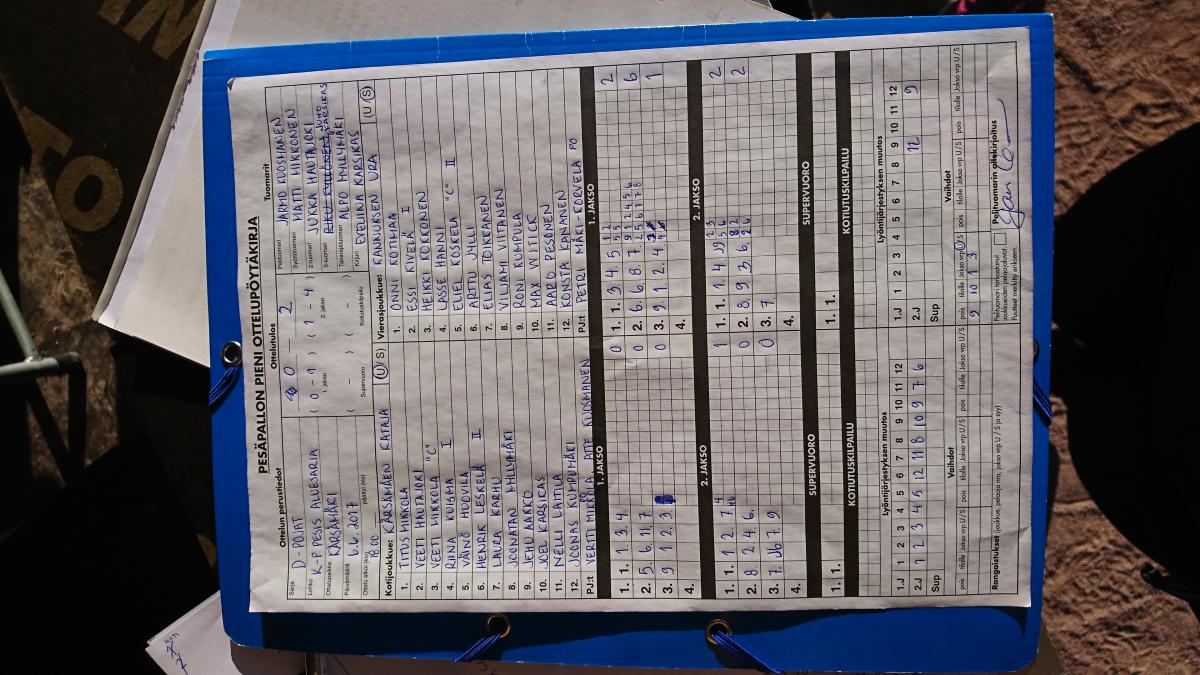 PESÄPALLON PIENI OTTELUPÖYTÄKIRJA
Ottelun perustiedot
Ottelutulos
Tuomarit
Sarja D-POJAT
Lohko K-P PESIS ALUESARJA
Ottelupaikka KÄRSÄMÄKI
Päivämäärä 6.6.2017
Ottelu alkoi (klo) 18.00
päättyi (klo)
0 - 2
( 0 - 9 ) ( 1 - 4 )
1. jakso 2. jakso
( - ) ( - )
Supervuoro Kotiutuskilpailu
Pelituomari JARMO KUOSMANEN
Syöttötuomari MATTI MIKKONEN
2-tuomari JUKKA HAUTAJOKI
3-tuomari
Takarajatuomari ALPO MYLLYMÄKI
Kirjuri EVELIINA KARSIKAS
Kotijoukkue: KÄRSÄMÄEN KATAJA (U/S)
1. TITUS MIKKOLA
2. VEETI HAUTAJOKI
3. VEETI MIKKOLA "C"
4. RIINA KUISMA I
5. VÄINÖ HUOVILA
6. HENRIK LESKELÄ II
7. LAURA KARHU
8. JOONATAN MYLLYMÄKI
9. JEHU AAKKO
10. JOEL KARSIKAS
11. NELLI LAITILA
12. JOONAS KUMPUMÄKI
PJ:t VERTTI MIKKOLA ATTE KUOSMANEN
Vierasjoukkue: KANNUKSEN URA (U/S)
1. ONNI KOTIMÄA
2. ESSI KIVELÄ I
3. HEIKKI KOKKONEN
4. LASSE HANNI
5. ELIEL KOSKELA "C" II
6. ARTTU JYLLI
7. ELIAS TOIKKANEN
8. VILJAMI VIITANEN
9. RONI RUMPULA
10. MAX WITICK
11. AARO PESONEN
12. KONSTA KANANEN
PJ:t PETRI MÄKI-KORVELA PO
1. JAKSO
1. JAKSO
1. 1. 1 3 4. 0
2. 5. 6 11 7 0
3. 9 1 2 3 0
4.
1. 1. 3 4 5 2
2. 6. 6 8 7 6
3. 9. 1 2 4 1
4.
2. JAKSO
2. JAKSO
1. 1. 1 2 7 1
2. 8 2 4 6. 0
3. 7 9 0
4.
1. 1. 1 4 2
2. 8 9 3 6 2
3. 7
4.
SUPERVUORO
SUPERVUORO
1. 1.
1. 1.
KOTIUTUSKILPAILU
KOTIUTUSKILPAILU
Lyöntijärjestyksen muutos
Lyöntijärjestyksen muutos
1.J 1 2 3 4 5 6 7 8 9 10 11 12
2.J 1 2 3 4 5 12 11 8 10 9 7 6
Sup
1.J 1 2 3 4 5 6 7 8 9 10 11 12
2.J 12 9
Sup
Vaihdot
Vaihdot
pois tilalle Jakso vrp U/S pois tilalle Jakso vrp U/S pois tilalle Jakso vrp U/S
pois tilalle Jakso vrp U/S pois tilalle Jakso vrp U/S pois tilalle Jakso vrp U/S
9 10 1 3
Rangaistukset (joukkue, pelaaja nro, jakso vrp U / S ja syy)
Pelituomari tarkastanut
joukkueiden pelaajaluvat.
Puutteet merkitty erikseen.
Pelituomarin allekirjoitus